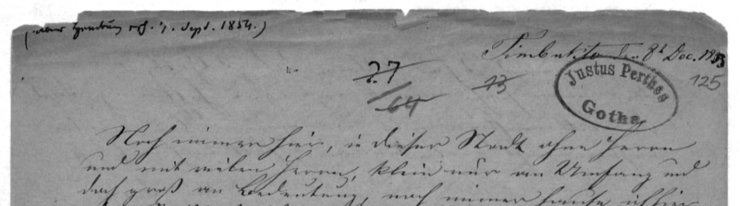 (neue Sendung rcf. 7. Sept. 1854.)
Timbuktu den 8t Dec. 1853
27
64
13
Justus Perthes
Gotha
125
Noch immer hier, in dieser Stadt ohne Herrn
und mit vielen Herrn, klein nur an Umfang und
doch groß an Bedeutung, noch immer